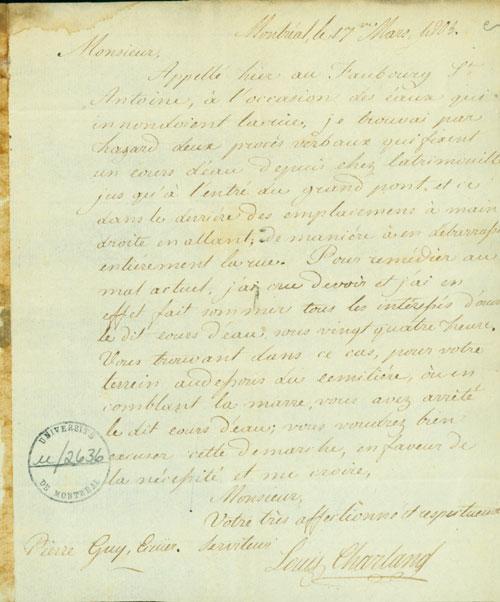 Montréal, le 17me Mars, 1803.
Monsieur,
Appellé hier au Faubourg St.
Antoine, à l'occasion des eaux qui
innondoient la rue, je trouvai par
hazard deux procès verbaux qui fixent
un cours d'eau depuis chez Latrimouille
jus qu'à l'entré du grand pont, et ce
dans le derriere des emplacemens à main
droite en allant, de maniére à en débarrasser
entierement la rue. Pour remédier au
mal actuel, j'ai cru devoir et j'ai en
effet fait sommer tous les intéressés d'ouvrir
le dit cours d'eau, sous vingt quatre heure.
Vous trouvant dans ce cas, pour votre
terrein audessous du cemitiére, où en
comblant la marre, vous avez arrêté
le dit cours d'eau; vous voudrez bien
excuser cette demarche, en faveur de
la nécessité et me croire,
Monsieur,
Votre très affectionné et respectueux
Pierre Guy, Ecuier. Serviteur
Louis Charland
UNIVERSITÉ
U/2636
DE MONTRÉAL